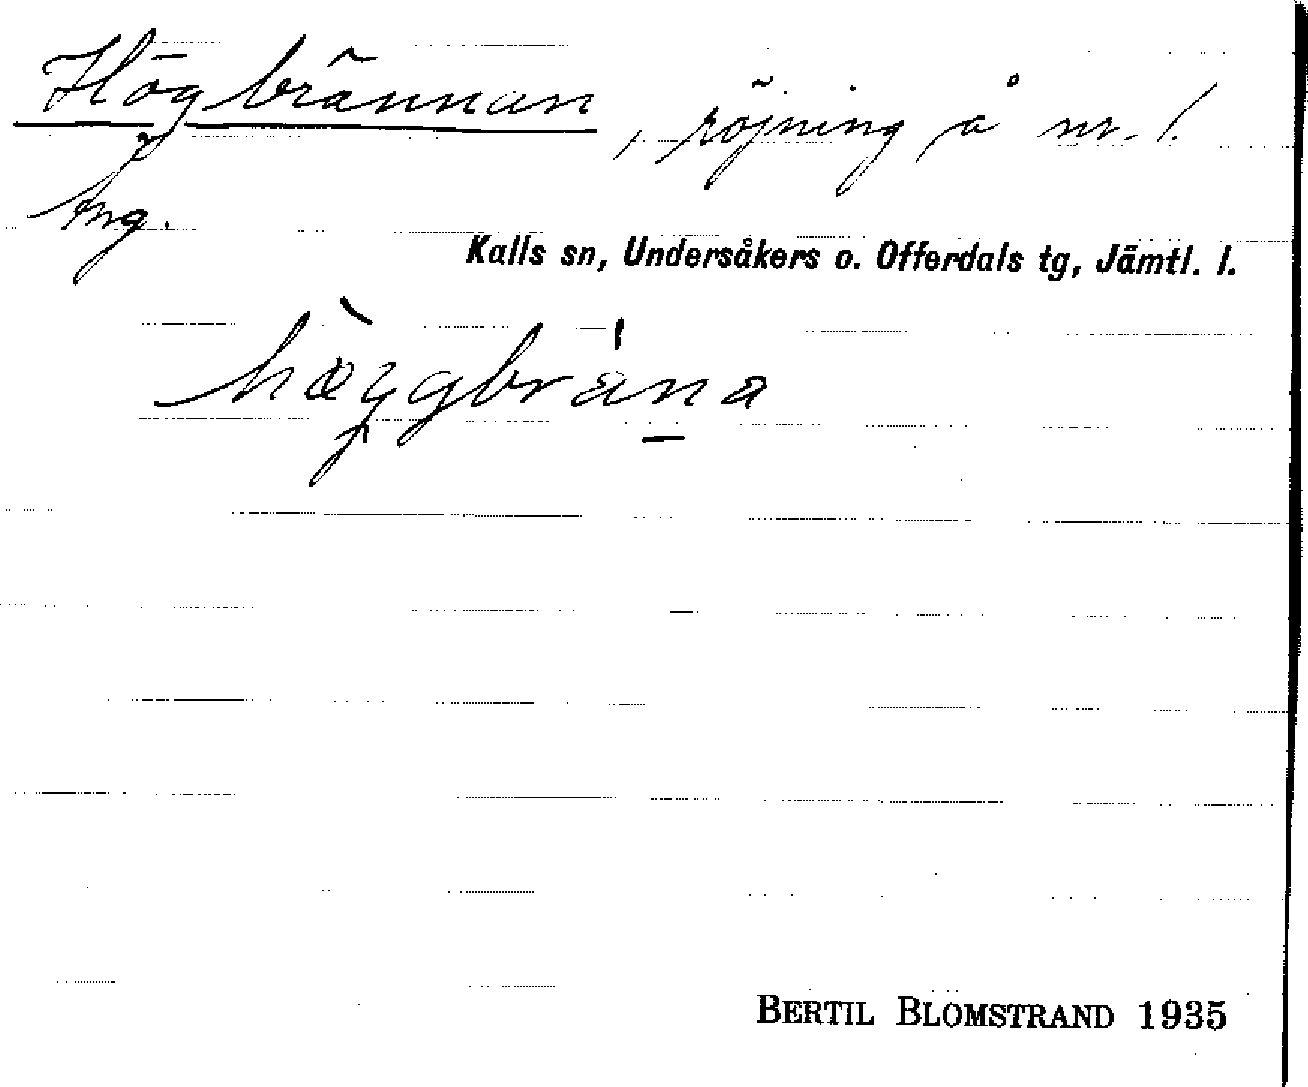 Högbrännan, röjning å nr. 1.
Kalls sn, Undersåkers o. Offerdals tg, Jämtl. l.
BERTIL BLOMSTRAND 1935